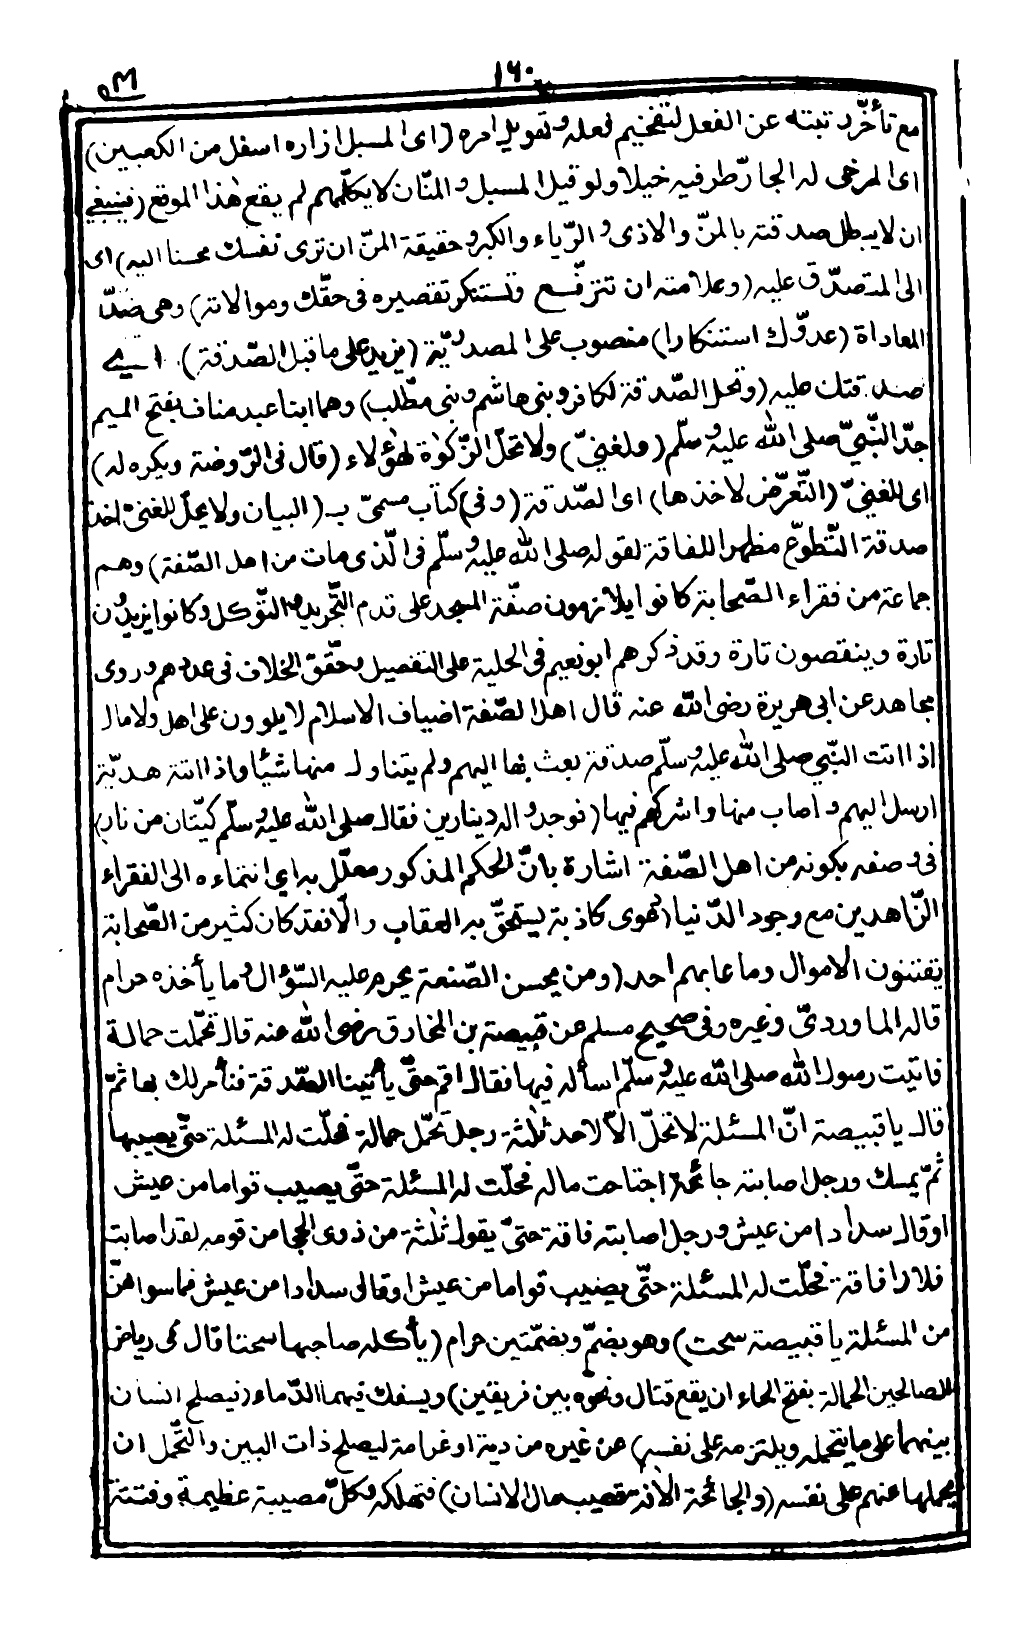 ١٦٠
مع تأخّر رتبته عن الفعل لتفخيم فعله وتهويل امره (اى المسبل ازاره اسفل من الكعبين)
اى المرخى له الجارّ طرفيه خيلا ولو قيل المسبل والمنّان لا يكلّمهم لم يقع هذا الموقع (فينبغى
ان لا يبطل صدقته بالمنّ والاذى والرّياء والكبر وحقيقة المنّ ان ترى نفسك محسنا اليه) اى
الى المتصدّق عليه (وعلامته ان تترفّع وتستنكر تقصيره فى حقّك وموالاته) وهى ضدّ
المعاداة (عدوّك استنكارا) منصوب على المصدريّة (يزيد على ما قبل الصّدقة) اى
صدقتك عليه (وتحل الصّدقة لكافر وبنى هاشم وبنى مطّلب) وهما ابنا عبد مناف بفتح الميم
جدّ النّبىّ صلى الله عليه وسلّم (ولغنىّ) ولا تحلّ الزّكوٰة لهؤلاء (قال فى الرّوضة ويكره له)
اى للغنىّ (التّعرّض لاخذها) اى الصّدقة (وفى) كتاب مسمّى بـ (البيان ولا يحلّ للغنىّ اخذ
صدقة التّطوّع مظهرا للفاقة لقوله صلى الله عليه وسلّم فى الّذى مات من اهل الصّفة) وهم
جماعة من فقراء الصّحابة كانوا يلازمون صفّة المسجد على قدم التّجريد والتّوكل وكانوا يزيدون
تارة وينقصون تارة وقد ذكرهم ابو نعيم فى الحلية على التفصيل وحقّق الخلاف فى عددهم وروى
مجاهد عن ابى هريرة رضى الله عنه قال اهل الصّفة اضياف الاسلام لا يلوون على اهل ولا مال
اذا اتت النّبى صلى الله عليه وسلّم صدقة بعث بها اليهم ولم يتناول منها شيئا واذا اتته هديّة
ارسل اليهم واصاب منها واشركهم فيها (فوجدوا له دينارين فقال صلى الله عليه وسلّم كيّتان من نار)
فى وصفه بكونه من اهل الصّفة اشارة بانّ الحكم المذكور معلّل به اى انتماءه الى الفقراء
الزّاهدين مع وجود الدّنيا دعوى كاذبة يستحقّ به العقاب والّا فقد كان كثير من الصّحابة
يقتنون الاموال وما عابهم احد (ومن يحسن الصّنعة يحرم عليه السّؤال وما يأخذه حرام
قاله الماوردىّ وغيره وفى صحيح مسلم عن قبيصة بن المخارق رضى الله عنه قال تحمّلت حمالة
فاتيت رسول الله صلى الله عليه وسلّم اسأله فيها فقال اقم حتّى يأتينا الصّدقة فنأمر لك بها ثمّ
قال يا قبيصة انّ المسئلة لا تحلّ الّا لاحد ثلٰثة رجل تحمّل حمالة فحلّت له المسئلة حتّى يصيبها
ثمّ يمسك ورجل اصابته جائحة اجتاحت ماله فحلّت له المسئلة حتّى يصيب قواما من عيش
او قال سدادا من عيش ورجل اصابته فاقة حتّى يقول ثلٰثة من ذوى الحجا من قومه لقد اصابت
فلانا فاقة فحلّت له المسئلة حتّى يصيب قواما من عيش او قال سدادا من عيش فما سواهنّ
من المسئلة يا قبيصة سحت) وهو بضمّ وبضمّتين حرام (يأكله صاحبها سحتا قال فى رياض
الصالحين الحمالة بفتح الحاء ان يقع قتال ونحوه بين فريقين) ويسفك فيهما الدّماء (فيصلح انسان
بينهما على ما يتحمله ويلتزمه على نفسه) عن غيره من دية او غرامة ليصلح ذات البين والتّحمّل ان
يحملها عنهم على نفسه (والجائحة الآفة تصيب مال الانسان) فتهلكه وكلّ مصيبة عظيمة وفتنة